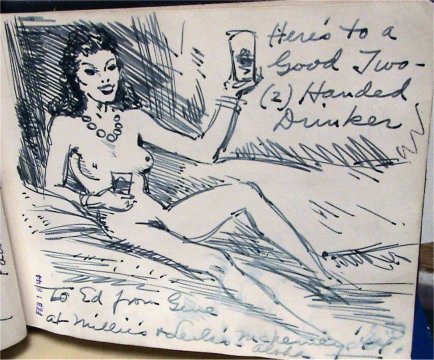 Here's to a
Good Two-
(2) Handed
Drinker
FEB 1 8 '44
To Ed from Gene
at Millie's & Leslie's